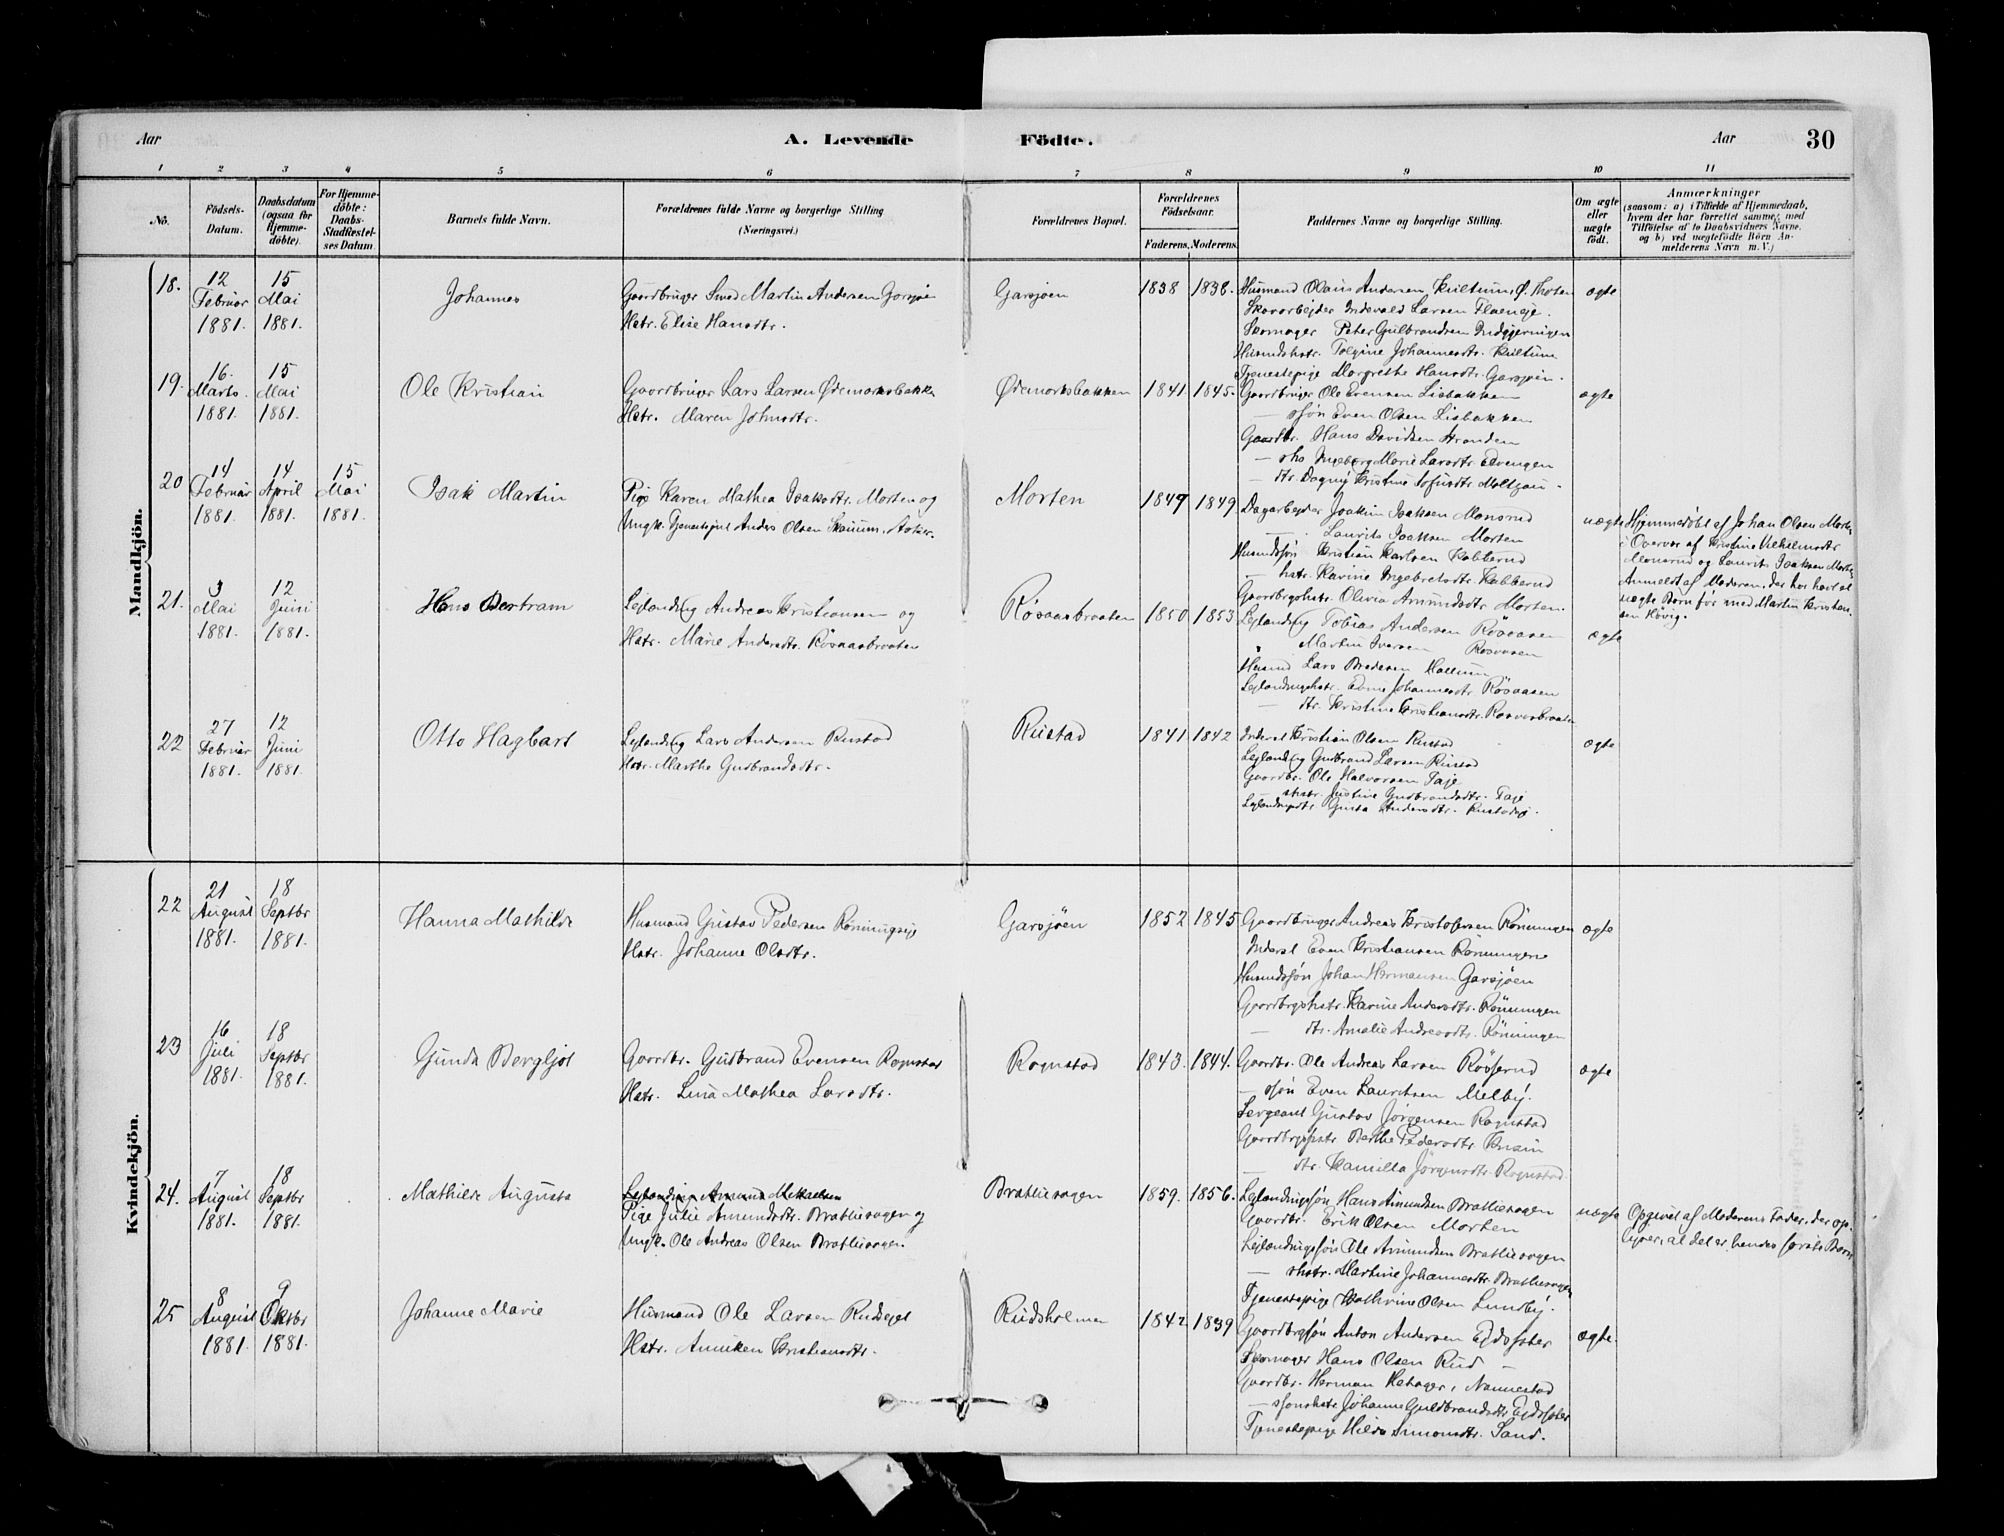 Aar
A. Levende
Födte.
Aar
30
1 2 3 4 5 6 7 8 9 10 11
No.
Födsels-
Datum.
Daabsdatum
(ogsaa for
Hjemme-
döbte).
For Hjemme-
döbte:
Daabs-
Stadfæstel-
ses Datum.
Barnets fulde Navn.
Forældrenes fulde Navne og borgerlige Stilling
(Næringsvei.)
Forældrenes Bopæl.
Forældrenes
Födselsaar.
Faderens. Moderens.
Faddernes Navne og borgerlige Stilling.
Om ægte
eller
uægte
födt.
Anmærkninger
(saasom: a) i Tilfælde af Hjemmedaab,
hvem der har forrettet samme, med
Tilföielse af to Daabsvidners Navne,
og b) ved uægtefödte Börn An-
melderens Navn m. V.)
Mandkjön.
18.
12
Februar
1881.
15
Mai
1881.
Johannes
Gaardbruger Smed Martin Andersen Garsjøen
Hstr. Elise Hansdtr.
Garsjøen
1838
1838.
Husmand Olaus Andersen Kultum, Ø. Thoten
Skovarbejder Indevald Larsen
Skomager Peter Gulbrandsen
Johannesdtr. Kultum
Tjenestepige Margrethe Hansdtr. Garsjøen.
ægte
19.
16.
Marts.
1881.
15
Mai
1881.
Ole Kristian
Gaardbruger Lars Larsen Ødemarksbakke
Hstr. Maren Johnsdtr.
Ødemarksbakken
1841
1845.
Gaardbruger Ole Evensen Lisbakken
— søn Even Olsen Lisbakken
Gaardbr. Hans Davidsen Stranden
Ingeborg Marie Larsdtr.
— dtr. Dagny Kristine
ægte
20
14
Februar
1881.
14
April
1881.
15
Mai
1881.
Isak Martin
Pige Karen Mathea Isaksdtr. Morten og
Ungk. Anders Olsen
Morten
1849
1849
Dagarbejder Joakim Isaksen Monsrud
— Laurits Isaksen Morten
Husmdssøn Kristian Karlsen Kabberud
— hstr. Karine Ingebretsdtr. Kabberud
Gaardbrgshstr. Olivia Amundsdtr Morten.
uægte
Hjemmedøbt af Johan Olsen
i Overvær af Kristine Vilhelmsdtr
Monsrud og Laurits Isaksen
Anmeldt af Moderen, der har havt et
uægte Barn før med Martin Kristen-
sen Høvig.
21.
3
Mai
1881.
12
Juni
1881.
Hans Bertram
Lejlænding Andreas Kristiansen og
Hstr. Marie Andersdtr. Røsaasbraaten
Røsaasbraaten
1850
1853
Lejlænding Tobias Andersen Røsaasen
" Martin Iversen Røsaasen
Husmd Lars Hallum
Lejlændingshstr. Johannesdtr Røsaasen
— dtr. Kristine Kristiansdtr.
ægte
22
27
Februar
1881.
12
Juni
1881.
Otto Hagbart
Lejlænding Lars Andersen Rustad
Hstr. Marthe Gudbrandsdtr.
Rustad
1841
1842
Inderst Kristian Olsen Rustad
Lejlænding Gudbrand Larsen Rustad
Gaardbr. Ole Halvorsen Taje
shstr. Justine Gudbrandsdtr. Taje
Lejlændingsdtr Gusta Andersdtr.
ægte
Kvindekjön.
22
21
August
1881.
18
Septbr
1881.
Hanna Mathilde
Husmand Gustav Pedersen Rønningseje
Hstr. Johanne Olsdtr.
Garsjøen
1852
1845
Gaardbruger Andreas Kristofersen Rønningen
Inderst Even Kristiansen Rønningen
Husmdssøn Johan Hermansen Garsjøen
Gaardbrgshstr. Karine Andersdtr. Rønningen
— dtr. Amalie Andreasdtr. Rønningen
ægte
23
16
Juli
1881.
18
Septbr
1881.
Gunda Bergljot
Gaardbr. Gudbrand Evensen Rognstad
Hstr. Lina Mathea Larsdtr.
Rognstad
1843.
1844.
Gaardbr. Ole Andreas Larsen Røsserud
— søn Even Lauritsen Melby.
Sergeant Gustav Jørgensen Rognstad
Berthe Pedersdtr
— dtr. Kamilla Jørgensdtr. Rognstad
ægte
24.
7
August
1881.
18
Septbr
1881.
Mathilde Augusta
Lejlænding Amund Mikaelsen
Pige Julie Amundsdtr. Brattlihagen og
Ungk. Ole Andreas Olsen Brattlihagen.
Brattlihagen
1859.
1856.
Lejlændingssøn Hans Amundsen Brattlihagen
Gaardbr. Erik Olsen Morten
Lejlændingssøn Ole Amundsen Brattlihagen
— shstr. Martine Johannesdtr. Brattlihagen
Tjenestepige Kathrine Olsen Lundby.
uægte
Opgivet af Moderens Fader, der op-
lyser, at det er hendes første Barn
25
8
August
1881.
9
Oktbr
1881.
Johanne Marie
Husmand Ole Larsen Rudsejet
Hstr. Anniken Kristiansdtr.
Rudsholmen
1842
1839
Gaardbrgssøn Anton Andersen
Skomager Hans Olsen Rud —
Gaardbr. Herman Nannestad
Johanne Guldbrandsdtr
Tjenestepige Hilda Simonsdtr. Sand.
ægte